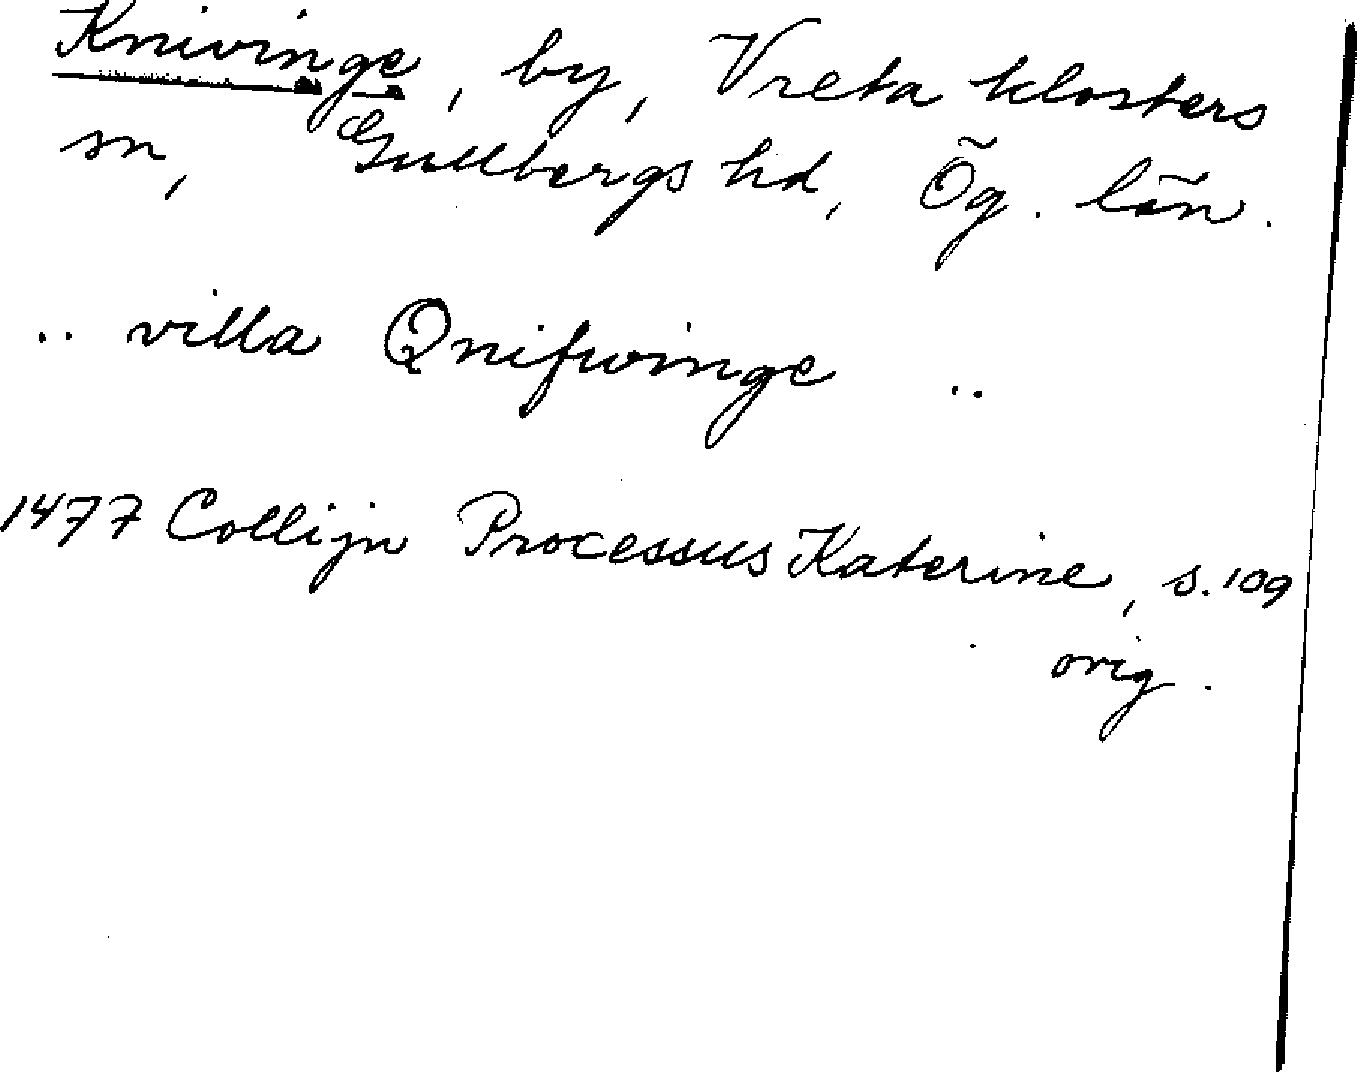 Knivinge, by, Vreta klosters
sn, Gullbergs hd, Ög. län.
.. villa Qnifwinge ..
1477 Collijn Processus Katerine, s. 109
orig.